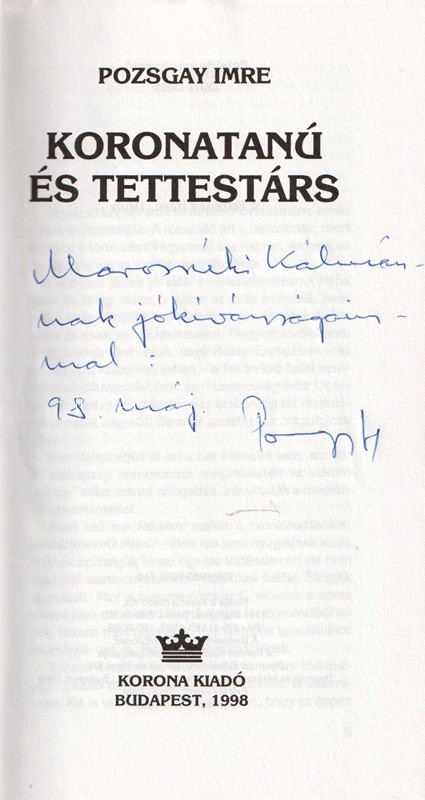 POZSGAY IMRE
KORONATANÚ
ÉS TETTESTÁRS
Marosszéki Kálmán-
nak jókívánságaim-
mal:
98 máj. Pozsgay I
KORONA KIADÓ
BUDAPEST, 1998